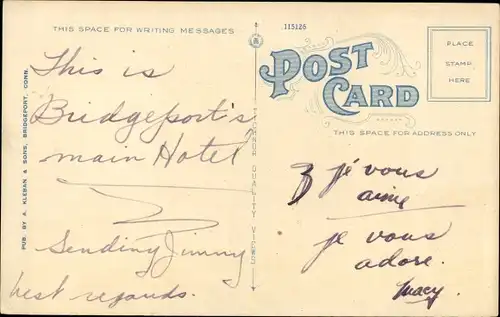 THIS SPACE FOR WRITING MESSAGES
This is
Bridgeport's
main Hotel
Sending Jimmy
best regards.
PUB. BY A. KLEBAN & SONS, BRIDGEPORT, CONN.
QUALITY VIEWS
115126
POST
CARD
THIS SPACE FOR ADDRESS ONLY
PLACE
STAMP
HERE
je vous
aime
je vous
adore.
Macy.